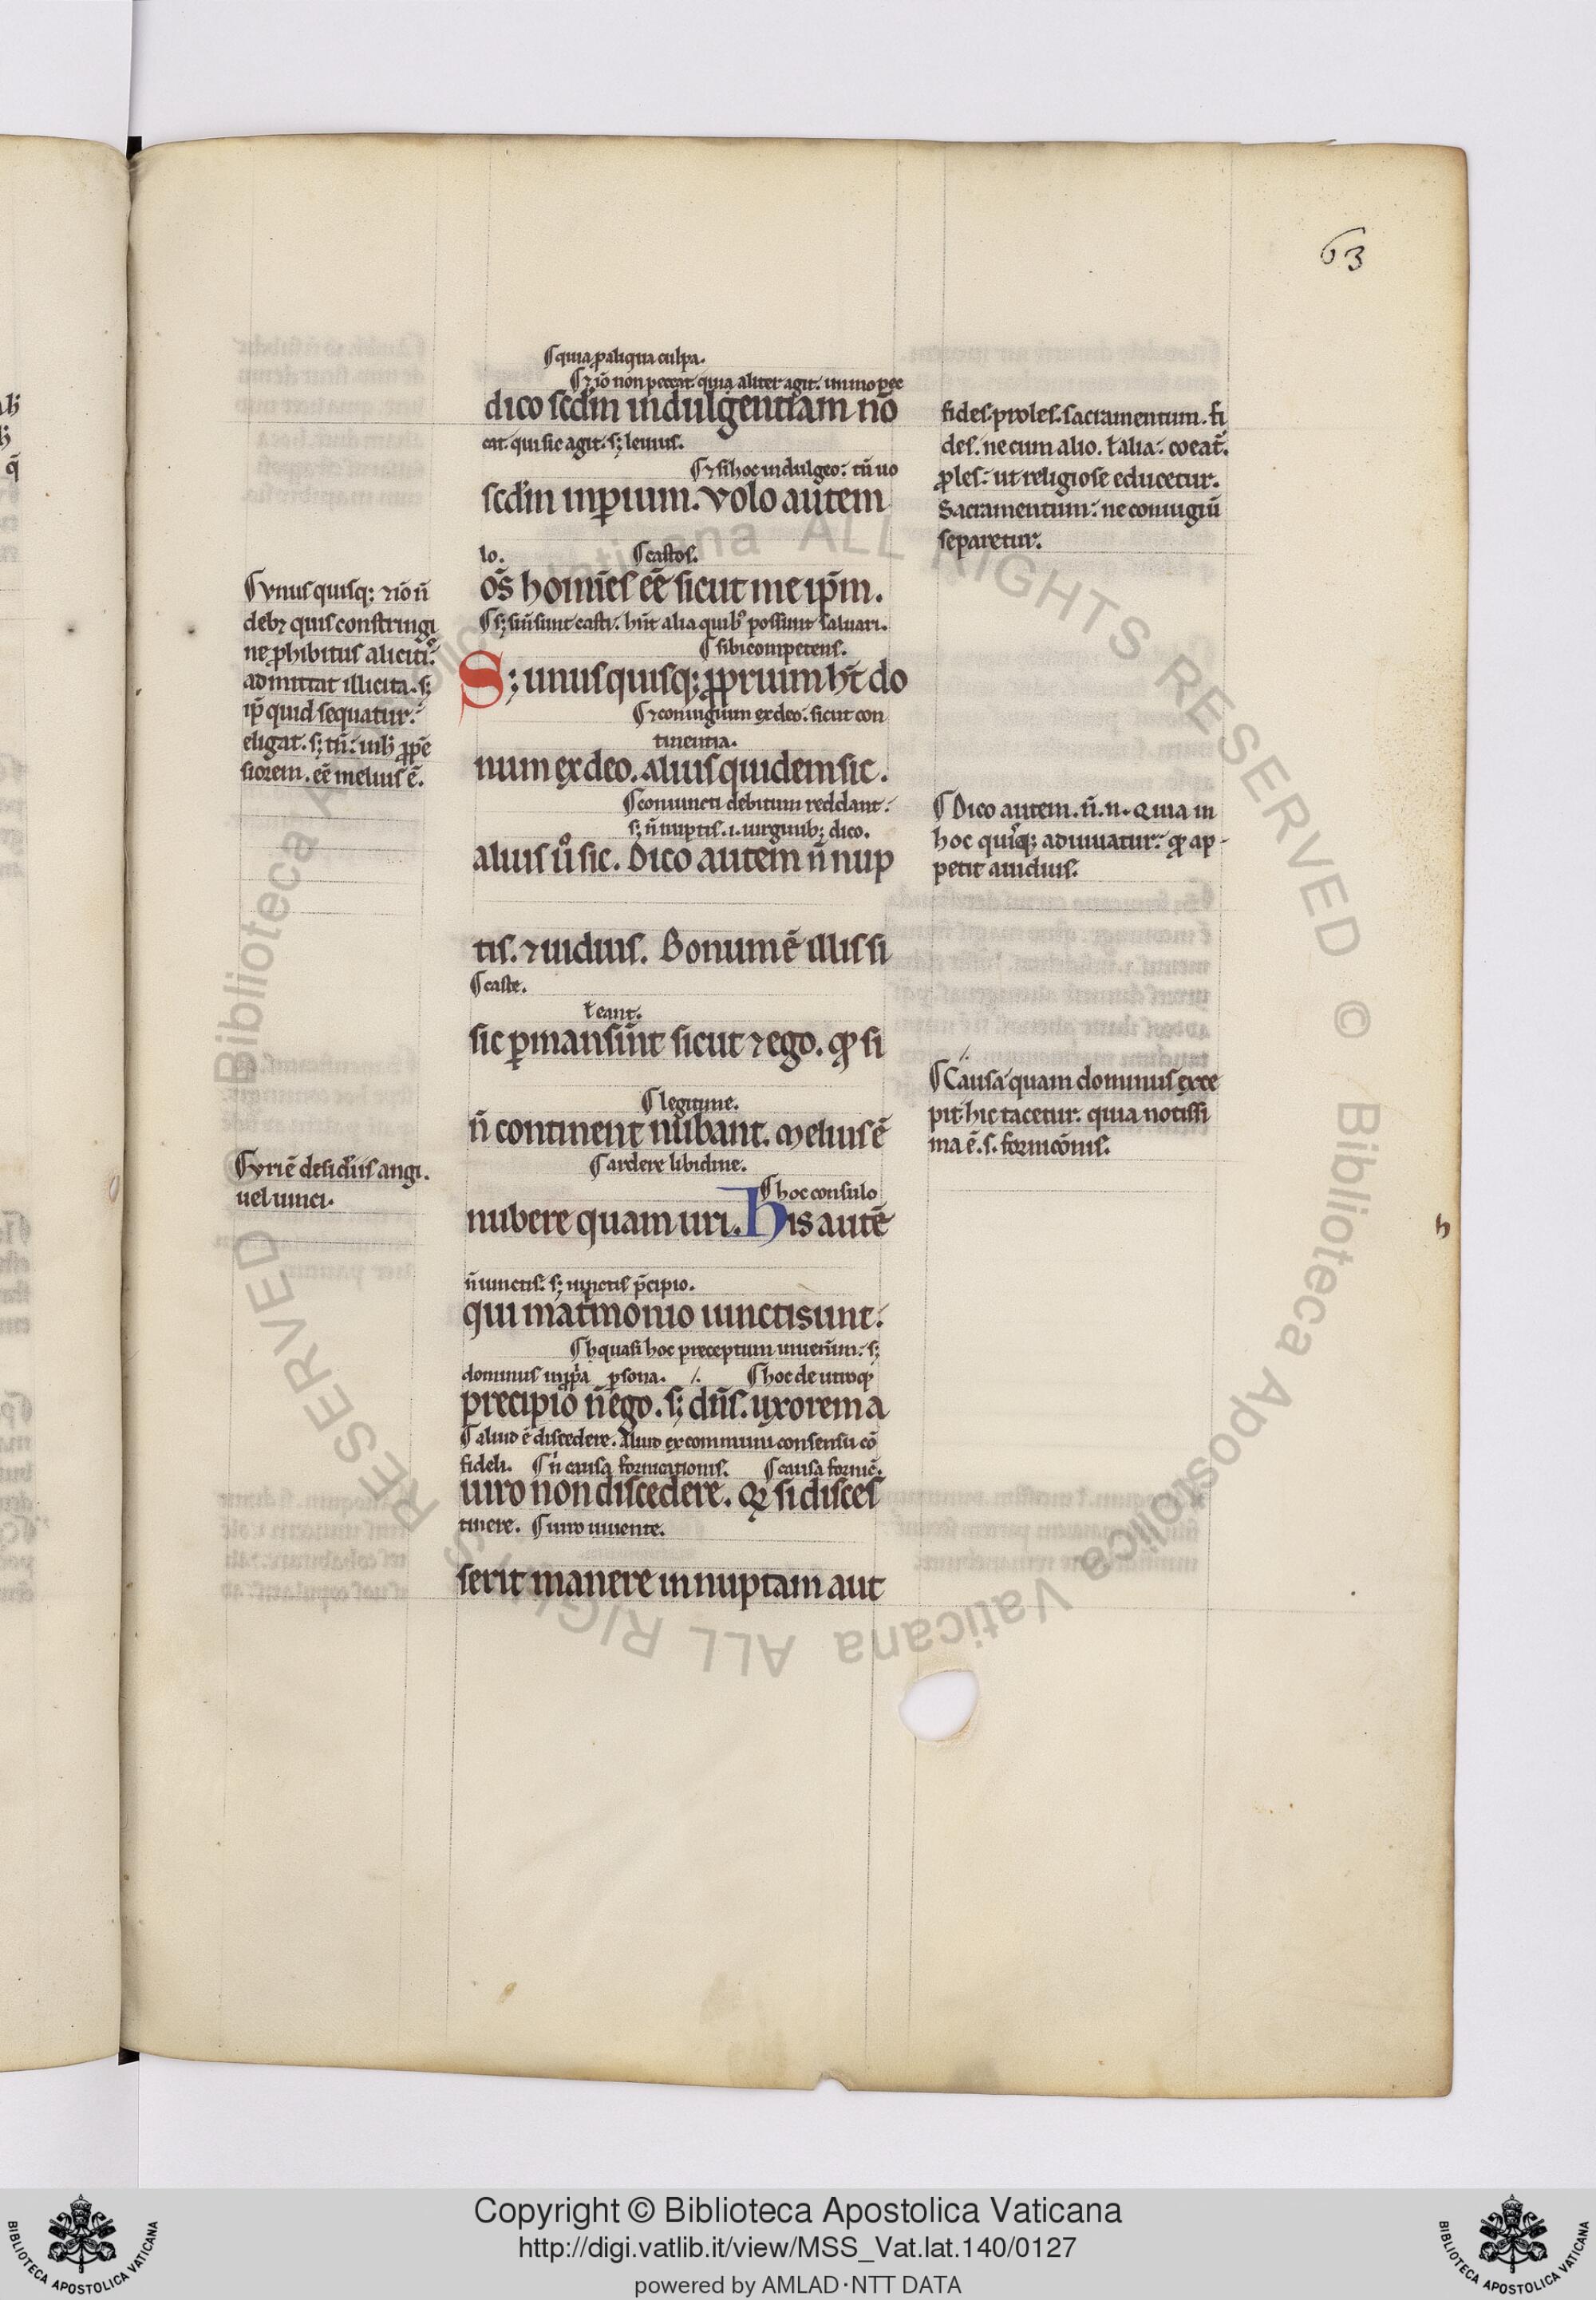 63
¶ quia p aliqua culpa.
¶ ⁊ iō non peccat quia aliter agit. immo pec
dico scd̄m indulgentiam nō
cat. qui sic agit. s; leuius.
¶ ⁊ si hoc indulgeo: tn̄ uo
scd̄m inꝑium. Volo autem
lo. ¶ castos.
om̄s homīes eē sicut me ip̄m.
¶ s; si n̄ sunt casti. hn̄t alia quibꝰ possunt saluari.
¶ sibi competens.
S; unusquisq; ꝓprium hȳt do
¶ ⁊ coniugium ex deo. sicut con
tinentia.
num ex deo. alius quidem sic.
¶ coniuncti debitum reddant.
s; n̄ nuptis .i. uirginib; dico.
alius ū sic. Dico autem n̄ nup
tis. ⁊ uiduis. Bonum ē illis si
¶ caste.
ł eant.
sic ꝑmanserint sicut ⁊ ego. qđ si
¶ legitime.
n̄ continent nubant. Melius ē
¶ ardere libidine.
¶ hoc consulo
nubere quam uri. His autē
n̄ iunctis. s; iunctis p̄cipio.
qui mat̄monio iuncti sunt.
¶ h quasi hoc preceptum inuenim. s;
dominus in ꝓpa ꝑsona. /. ¶ hoc de utroq;
precipio n̄ ego. s; dn̄s. uxorem a
¶ aliud ē discedere. Aliud ex communi consensu cō
fideli. ¶ n̄ causa fornicationis. ¶ causa fornic̄.
uiro non discedere. qđ si disces
tinere. ¶ uiro uiuente.
serit manere innuptam aut
¶ Vnusquisq; ⁊ iō n̄
deb⁊ quis constringi
ne ꝓhibitus a licitis
admittat illicita. s;
ip̄ quid sequatur:
eligat. s; tn̄
siorem. eē melius ē.
¶ Vri ē desideriis angi.
uel uinci.
fides. proles. sacramentum. fi
des. ne cum alio. ł alia. coeat̄.
ꝓles: ut religiose educetur.
Sacramentum: ne coniugiū
separetur.
¶ Dico autem. n̄. n. Quia in
hoc quisq; adiuuatur: qđ ap
petit auidius.
/.
¶ Causa quam dominus exce
pit: hic tacetur. quia notissi
ma ē. s. fornicōnis.
h
© Biblioteca Apostolica Vaticana ALL RIGHTS RESERVED © Biblioteca Apostolica Vaticana ALL RIGHTS RESERVED
Copyright © Biblioteca Apostolica Vaticana
http://digi.vatlib.it/view/MSS_Vat.lat.140/0127
powered by AMLAD·NTT DATA
BIBLIOTECA APOSTOLICA VATICANA
BIBLIOTECA APOSTOLICA VATICANA